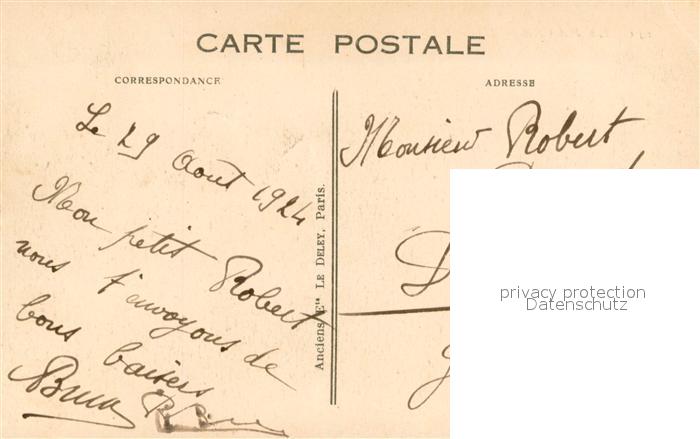 CARTE POSTALE
CORRESPONDANCE
ADRESSE
Le 29 Août 1924
Mon petit Robert
nous t'envoyons de
bons baisers
Anciens Etts LE DELEY, Paris.
Monsieur Robert
privacy protection
Datenschutz